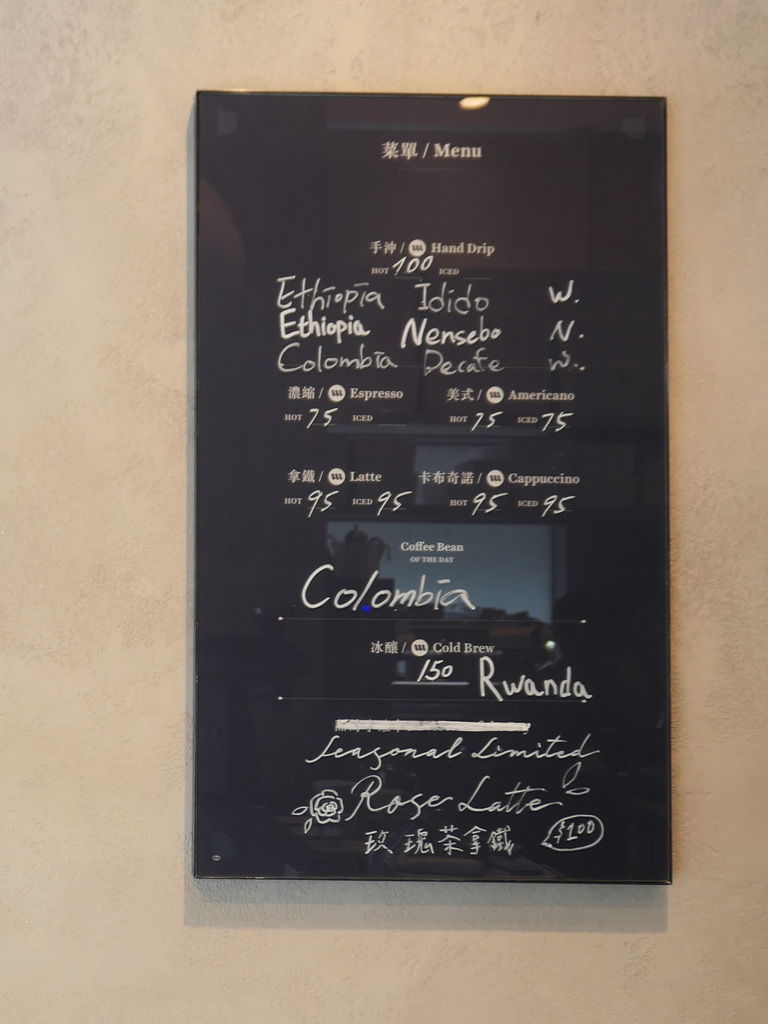 菜單 / Menu
手沖 / Hand Drip
HOT 100 ICED
Ethiopia Idido W.
Ethiopia Nensebo N.
Colombia Decafe W.
濃縮 / Espresso 美式 / Americano
HOT 75 ICED HOT 75 ICED 75
拿鐵 / Latte 卡布奇諾 / Cappuccino
HOT 95 ICED 95 HOT 95 ICED 95
Coffee Bean
OF THE DAY
Colombia
冰釀 / Cold Brew
150 Rwanda
Seasonal Limited
Rose Latte
玫瑰茶拿鐵 $100